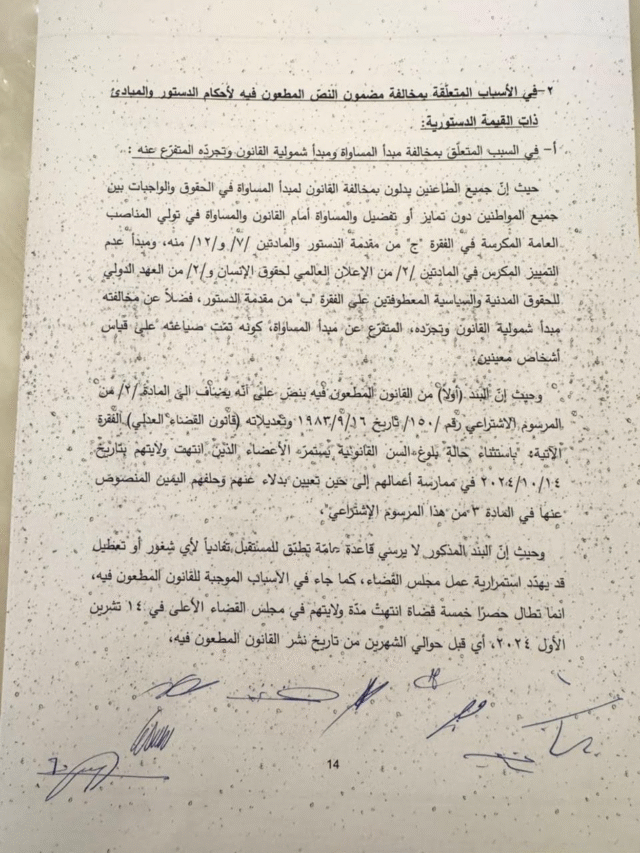 ٢- في الأسباب المتعلّقة بمخالفة مضمون النصّ المطعون فيه لأحكام الدستور والمبادئ
ذات القيمة الدستورية:
أ- في السبب المتعلّق بمخالفة مبدأ المساواة ومبدأ شمولية القانون وتجرّده المتفرّع عنه :
حيث إنّ جميع الطاعنين يدلون بمخالفة القانون لمبدأ المساواة في الحقوق والواجبات بين
جميع المواطنين دون تمايز أو تفضيل والمساواة أمام القانون والمساواة في تولي المناصب
العامة المكرسة في الفقرة "ج" من مقدمة الدستور والمادتين /٧/ و/١٢/ منه، ومبدأ عدم
التمييز المكرس في المادتين /٢/ من الإعلان العالمي لحقوق الإنسان و/٢/ من العهد الدولي
للحقوق المدنية والسياسية المعطوفتين على الفقرة "ب" من مقدمة الدستور، فضلاً عن مخالفته
مبدأ شمولية القانون وتجرّده، المتفرع عن مبدأ المساواة، كونه تمّت صياغته على قياس
أشخاص معينين.
وحيث إنّ البند (أولاً) من القانون المطعون فيه ينص على أنّه يضاف الى المادة /٢/ من
المرسوم الاشتراعي رقم /١٥٠/ تاريخ ١٩٨٣/٩/١٦ وتعديلاته (قانون القضاء العدلي) الفقرة
الآتية: "باستثناء حالة بلوغ السن القانونية يستمرّ الأعضاء الذين انتهت ولايتهم بتاريخ
٢٠٢٤/١٠/١٤ في ممارسة أعمالهم إلى حين تعيين بدلاء عنهم وحلفهم اليمين المنصوص
عنها في المادة ٣ من هذا المرسوم الإشتراعي".
وحيث إنّ البند المذكور لا يرسي قاعدة عامّة تطبّق للمستقبل تفادياً لأي شغور أو تعطيل
قد يهدّد استمرارية عمل مجلس القضاء، كما جاء في الأسباب الموجبة للقانون المطعون فيه،
انما تطال حصرًا خمسة قضاة انتهت مدّة ولايتهم في مجلس القضاء الأعلى في ١٤ تشرين
الأول ٢٠٢٤، أي قبل حوالي الشهرين من تاريخ نشر القانون المطعون فيه،
14